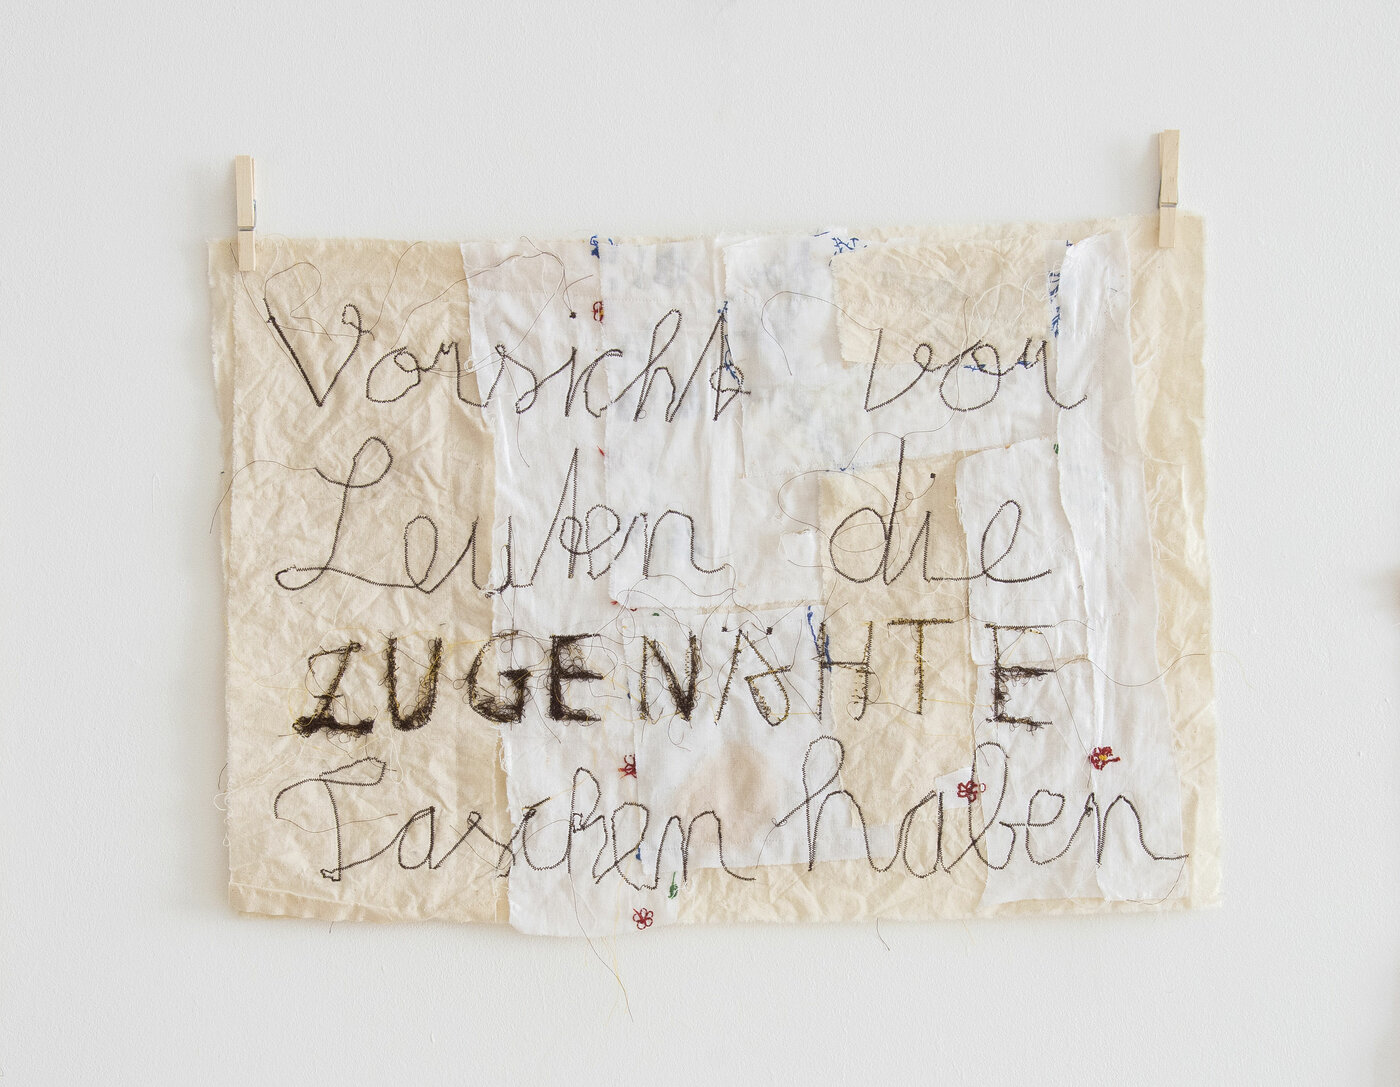 Vorsicht vor
Leuten die
ZUGENÄHTE
Taschen haben